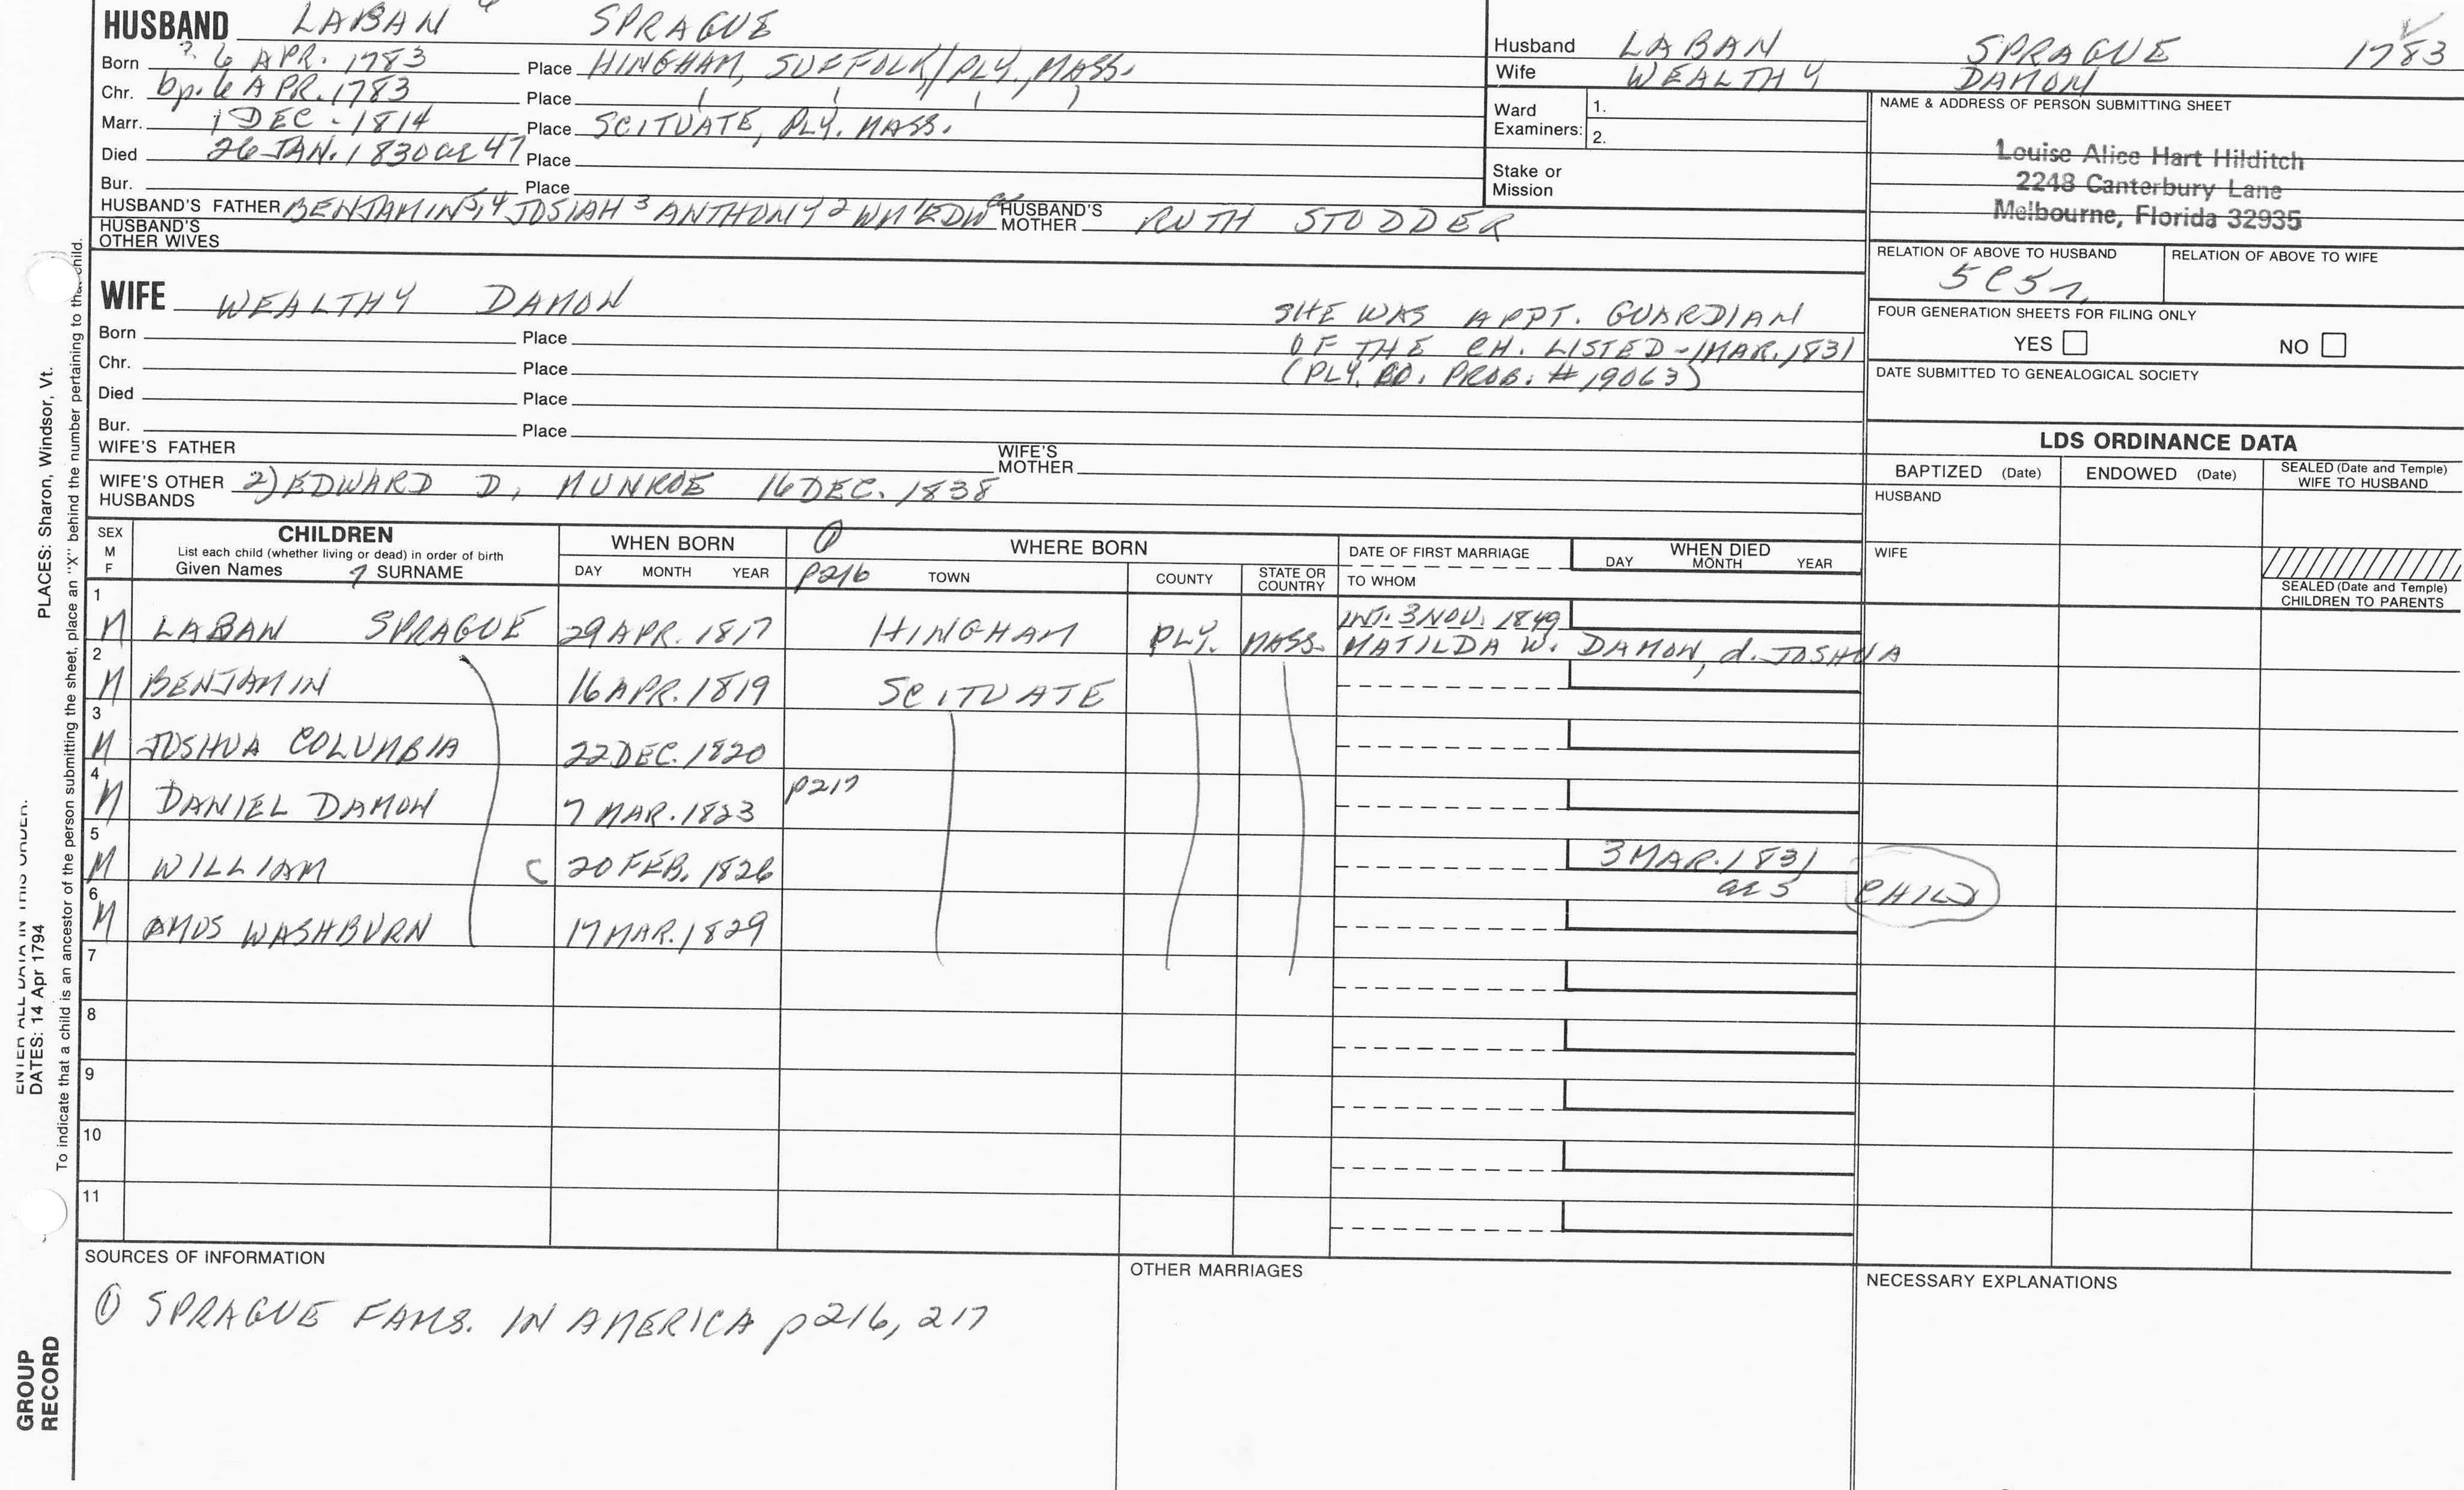 HUSBAND LABAN 6 SPRAGUE
Born ? 6 APR. 1783 Place HINGHAM, SUFFOLK/PLY., MASS.
Chr. bp. 6 APR. 1783 Place
Marr. 1 DEC - 1814 Place SCITUATE, PLY. MASS.
Died 26 JAN. 1830 ae 47 Place
Bur. Place
HUSBAND'S FATHER BENJAMIN 5,4 JOSIAH 3 ANTHONY 2 WM 1 EDW a HUSBAND'S MOTHER RUTH STODDER
HUSBAND'S OTHER WIVES
Husband LABAN SPRAGUE 1783
Wife WEALTHY DAMON
Ward Examiners: 1.
2.
Stake or Mission
NAME & ADDRESS OF PERSON SUBMITTING SHEET
Louise Alice Hart Hilditch
2248 Canterbury Lane
Melbourne, Florida 32935
RELATION OF ABOVE TO HUSBAND RELATION OF ABOVE TO WIFE
5C5r
FOUR GENERATION SHEETS FOR FILING ONLY
YES NO
DATE SUBMITTED TO GENEALOGICAL SOCIETY
WIFE WEALTHY DAMON
SHE WAS APPT. GUARDIAN
OF THE CH. LISTED - 1 MAR. 1831
(PLY. CO. PROB. # 19063)
Born Place
Chr. Place
Died Place
Bur. Place
WIFE'S FATHER WIFE'S MOTHER
WIFE'S OTHER HUSBANDS 2) EDWARD D. MUNROE 16 DEC. 1838
LDS ORDINANCE DATA
BAPTIZED (Date) ENDOWED (Date) SEALED (Date and Temple) WIFE TO HUSBAND
HUSBAND
WIFE
SEALED (Date and Temple) CHILDREN TO PARENTS
SEX M F CHILDREN
List each child (whether living or dead) in order of birth
Given Names 7 SURNAME
WHEN BORN
DAY MONTH YEAR
① p216
WHERE BORN
TOWN COUNTY STATE OR COUNTRY
DATE OF FIRST MARRIAGE
TO WHOM
WHEN DIED
DAY MONTH YEAR
1 M LABAN SPRAGUE 29 APR. 1817 HINGHAM PLY. MASS. INT. 3 NOV. 1849
MATILDA W. DAMON, d. JOSHUA
2 M BENJAMIN 16 APR. 1819 SCITUATE
3 M JOSHUA COLUMBIA 22 DEC. 1820
4 M DANIEL DAMON 7 MAR. 1823 p217
5 M WILLIAM C 20 FEB. 1826 3 MAR. 1831
ae 5 CHILD
6 M AMOS WASHBURN 17 MAR. 1829
7
8
9
10
11
SOURCES OF INFORMATION
① SPRAGUE FAMS. IN AMERICA p216, 217
OTHER MARRIAGES
NECESSARY EXPLANATIONS
ENTER ALL DATA IN THIS ORDER:
DATES: 14 Apr 1794
PLACES: Sharon, Windsor, Vt.
To indicate that a child is an ancestor of the person submitting the sheet, place an "X" behind the number pertaining to that child.
GROUP
RECORD